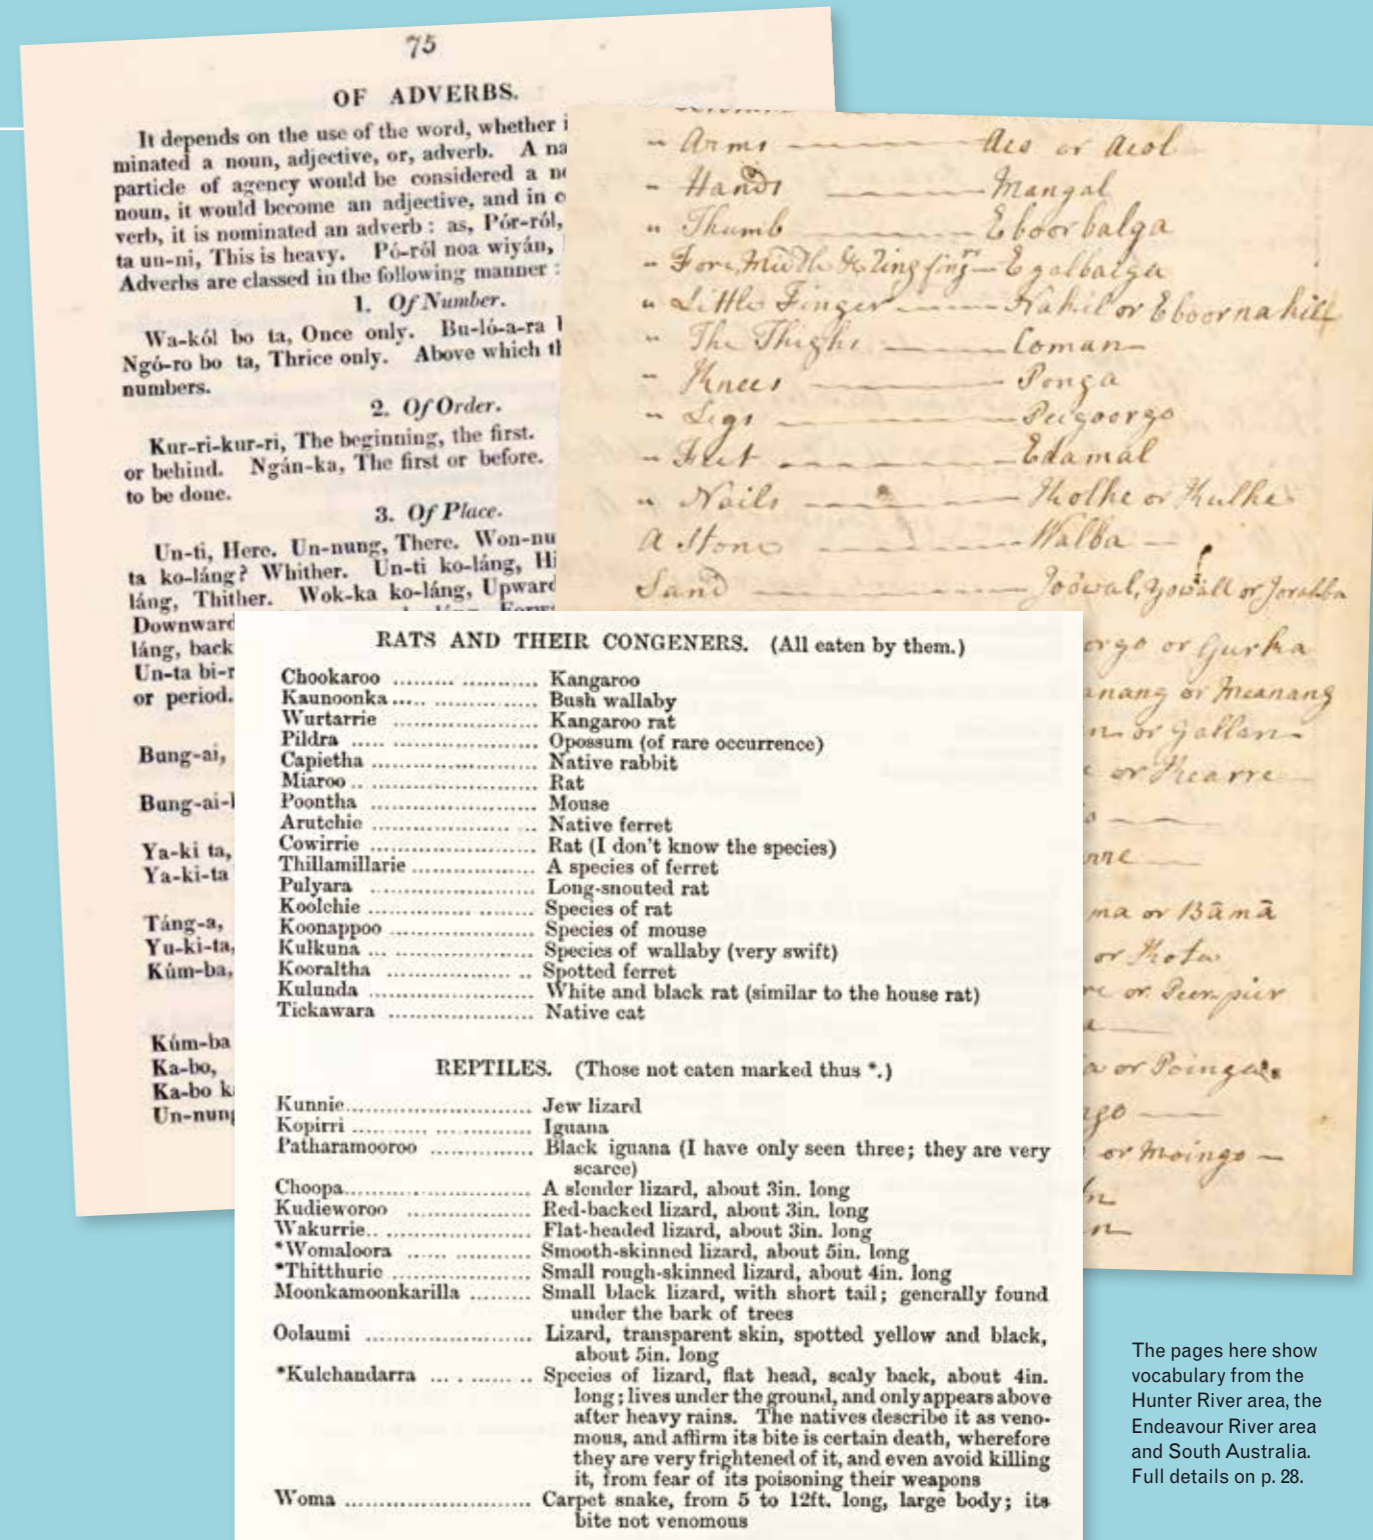 75
OF ADVERBS.
It depends on the use of the word, whether i
minated a noun, adjective, or, adverb. A na
particle of agency would be considered a no
noun, it would become an adjective, and in c
verb, it is nominated an adverb : as, Pór-ról,
ta un-ni, This is heavy. Pó-ról noa wiyán,
Adverbs are classed in the following manner :
1. Of Number.
Wa-kól bo ta, Once only. Bu-ló-a-ra
Ngó-ro bo ta, Thrice only. Above which th
numbers.
2. Of Order.
Kur-ri-kur-ri, The beginning, the first.
or behind. Ngán-ka, The first or before.
to be done.
3. Of Place.
Un-ti, Here. Un-nung, There. Won-nu
ta ko-láng? Whither. Un-ti ko-láng, Hi
láng, Thither. Wok-ka ko-láng, Upward
Downward
láng, back
Un-ta bi-r
or period.
Bung-ai,
Bung-ai-
Ya-ki ta,
Ya-ki-ta
Táng-a,
Yu-ki-ta,
Kúm-ba,
Kúm-ba
Ka-bo,
Ka-bo k
Un-nung
" Arms — Aco or Acol
" Hands — Mangal
" Thumb — Eboorbalga
" Fore, Middle & Ring fingrs — Egalbaiga
" Little Finger — Nakil or Eboornakill
" The Thighs — Coman
" Knees — Ponga
" Legs — Peegoorgo
" Feet — Edamal
" Nails — Kolke or Kulke
A Stone — Walba
Sand — Joowal, Yowall or Joralba
orgo or Gurka
anang or Meanang
n or Gallan
or Kearre
nne
ma or Bāmā
or Kota
re or Peer-pier
a or Poinga
go
or Moingo
n
RATS AND THEIR CONGENERS. (All eaten by them.)
Chookaroo ........ Kangaroo
Kaunoonka ........ Bush wallaby
Wurtarrie ........ Kangaroo rat
Pildra ........ Opossum (of rare occurrence)
Capietha ........ Native rabbit
Miaroo ........ Rat
Poontha ........ Mouse
Arutchie ........ Native ferret
Cowirrie ........ Rat (I don't know the species)
Thillamillarie ........ A species of ferret
Pulyara ........ Long-snouted rat
Koolchie ........ Species of rat
Koonappoo ........ Species of mouse
Kulkuna ........ Species of wallaby (very swift)
Kooraltha ........ Spotted ferret
Kulunda ........ White and black rat (similar to the house rat)
Tickawara ........ Native cat
REPTILES. (Those not eaten marked thus *.)
Kunnie ........ Jew lizard
Kopirri ........ Iguana
Patharamooroo ........ Black iguana (I have only seen three; they are very
scarce)
Choopa ........ A slender lizard, about 3in. long
Kudieworoo ........ Red-backed lizard, about 3in. long
Wakurrie ........ Flat-headed lizard, about 3in. long
*Womaloora ........ Smooth-skinned lizard, about 5in. long
*Thitthurie ........ Small rough-skinned lizard, about 4in. long
Moonkamoonkarilla ........ Small black lizard, with short tail; generally found
under the bark of trees
Oolaumi ........ Lizard, transparent skin, spotted yellow and black,
about 5in. long
*Kulchandarra ........ Species of lizard, flat head, scaly back, about 4in.
long; lives under the ground, and only appears above
after heavy rains. The natives describe it as veno-
mous, and affirm its bite is certain death, wherefore
they are very frightened of it, and even avoid killing
it, from fear of its poisoning their weapons
Woma ........ Carpet snake, from 5 to 12ft. long, large body; its
bite not venomous
The pages here show
vocabulary from the
Hunter River area, the
Endeavour River area
and South Australia.
Full details on p. 28.